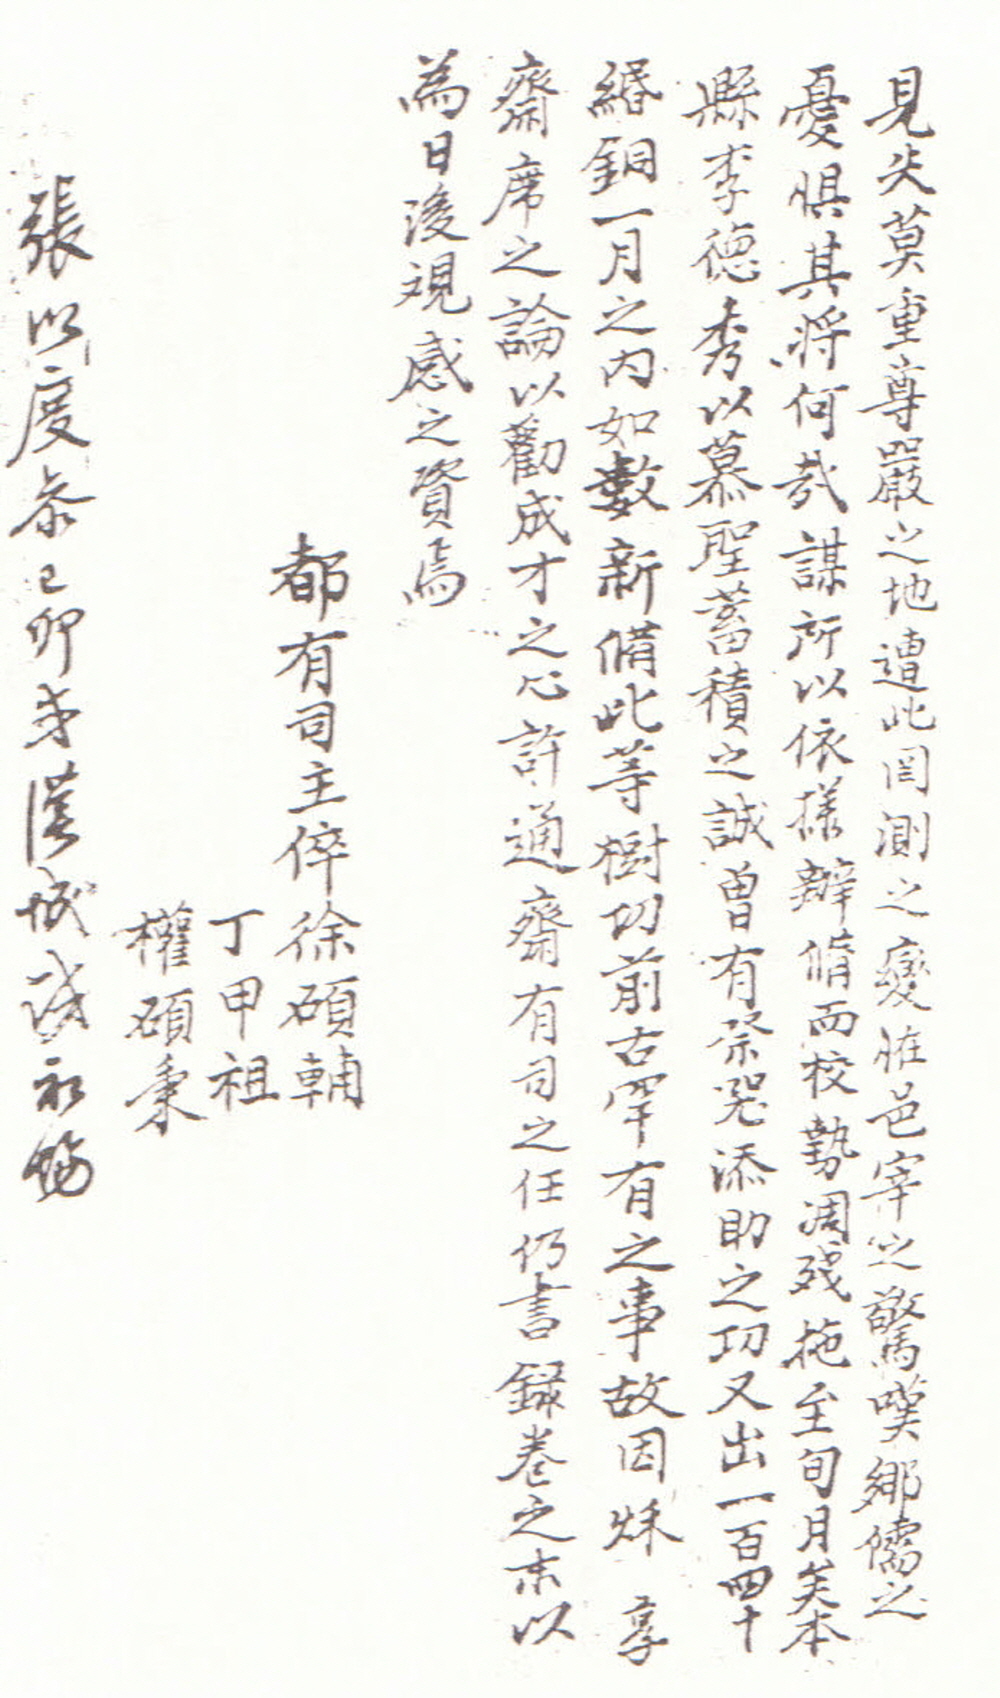 見失莫重尊嚴之地遭此罔測之變惟邑宰之驚嘆鄉儒之
憂惧其將何哉謀所以依樣辦脩而校勢凋殘拖至旬月矣本
縣李德秀以慕聖蓄積之誠曾有祭器添助之功又出一百四十
緡銅一月之內如數新備此等樹切前古罕有之事故因秌享
齋席之論以勸成才之心許通齋有司之任仍書錄卷之末以
為日後視感之資焉
都有司主倅徐碩輔
丁甲祖
權碩秉
張以度 己卯 漢城